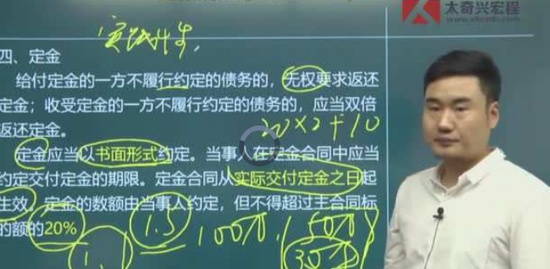 太奇兴宏程
实践性
四、定金
给付定金的一方不履行约定的债务的，无权要求返还
定金；收受定金的一方不履行约定的债务的，应当双倍
返还定金。
20×2+10
定金应当以书面形式约定。当事人在定金合同中应当
约定交付定金的期限。定金合同从实际交付定金之日起
生效。定金的数额由当事人约定，但不得超过主合同标
的额的20%
1.5
100万
50万
30万